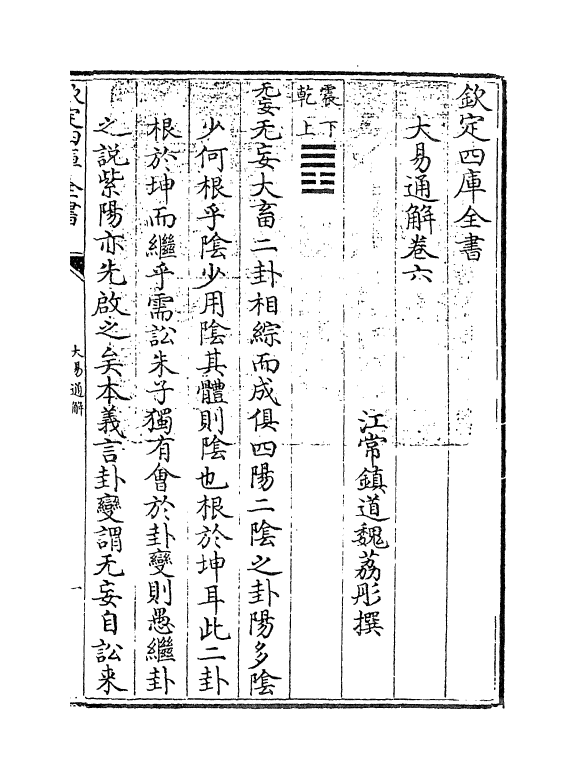 欽定四庫全書
大易通解卷六
江常鎮道魏荔彤撰
震下
乾上
无妄无妄大畜二卦相綜而成俱四陽二陰之卦陽多陰
少何根乎陰少用陰其體則陰也根於坤耳此二卦
根於坤而繼乎需訟朱子獨有會於卦變則愚繼卦
之説紫陽亦先啟之矣本義言卦變謂无妄自訟来
欽定四庫全書
大易通解
一